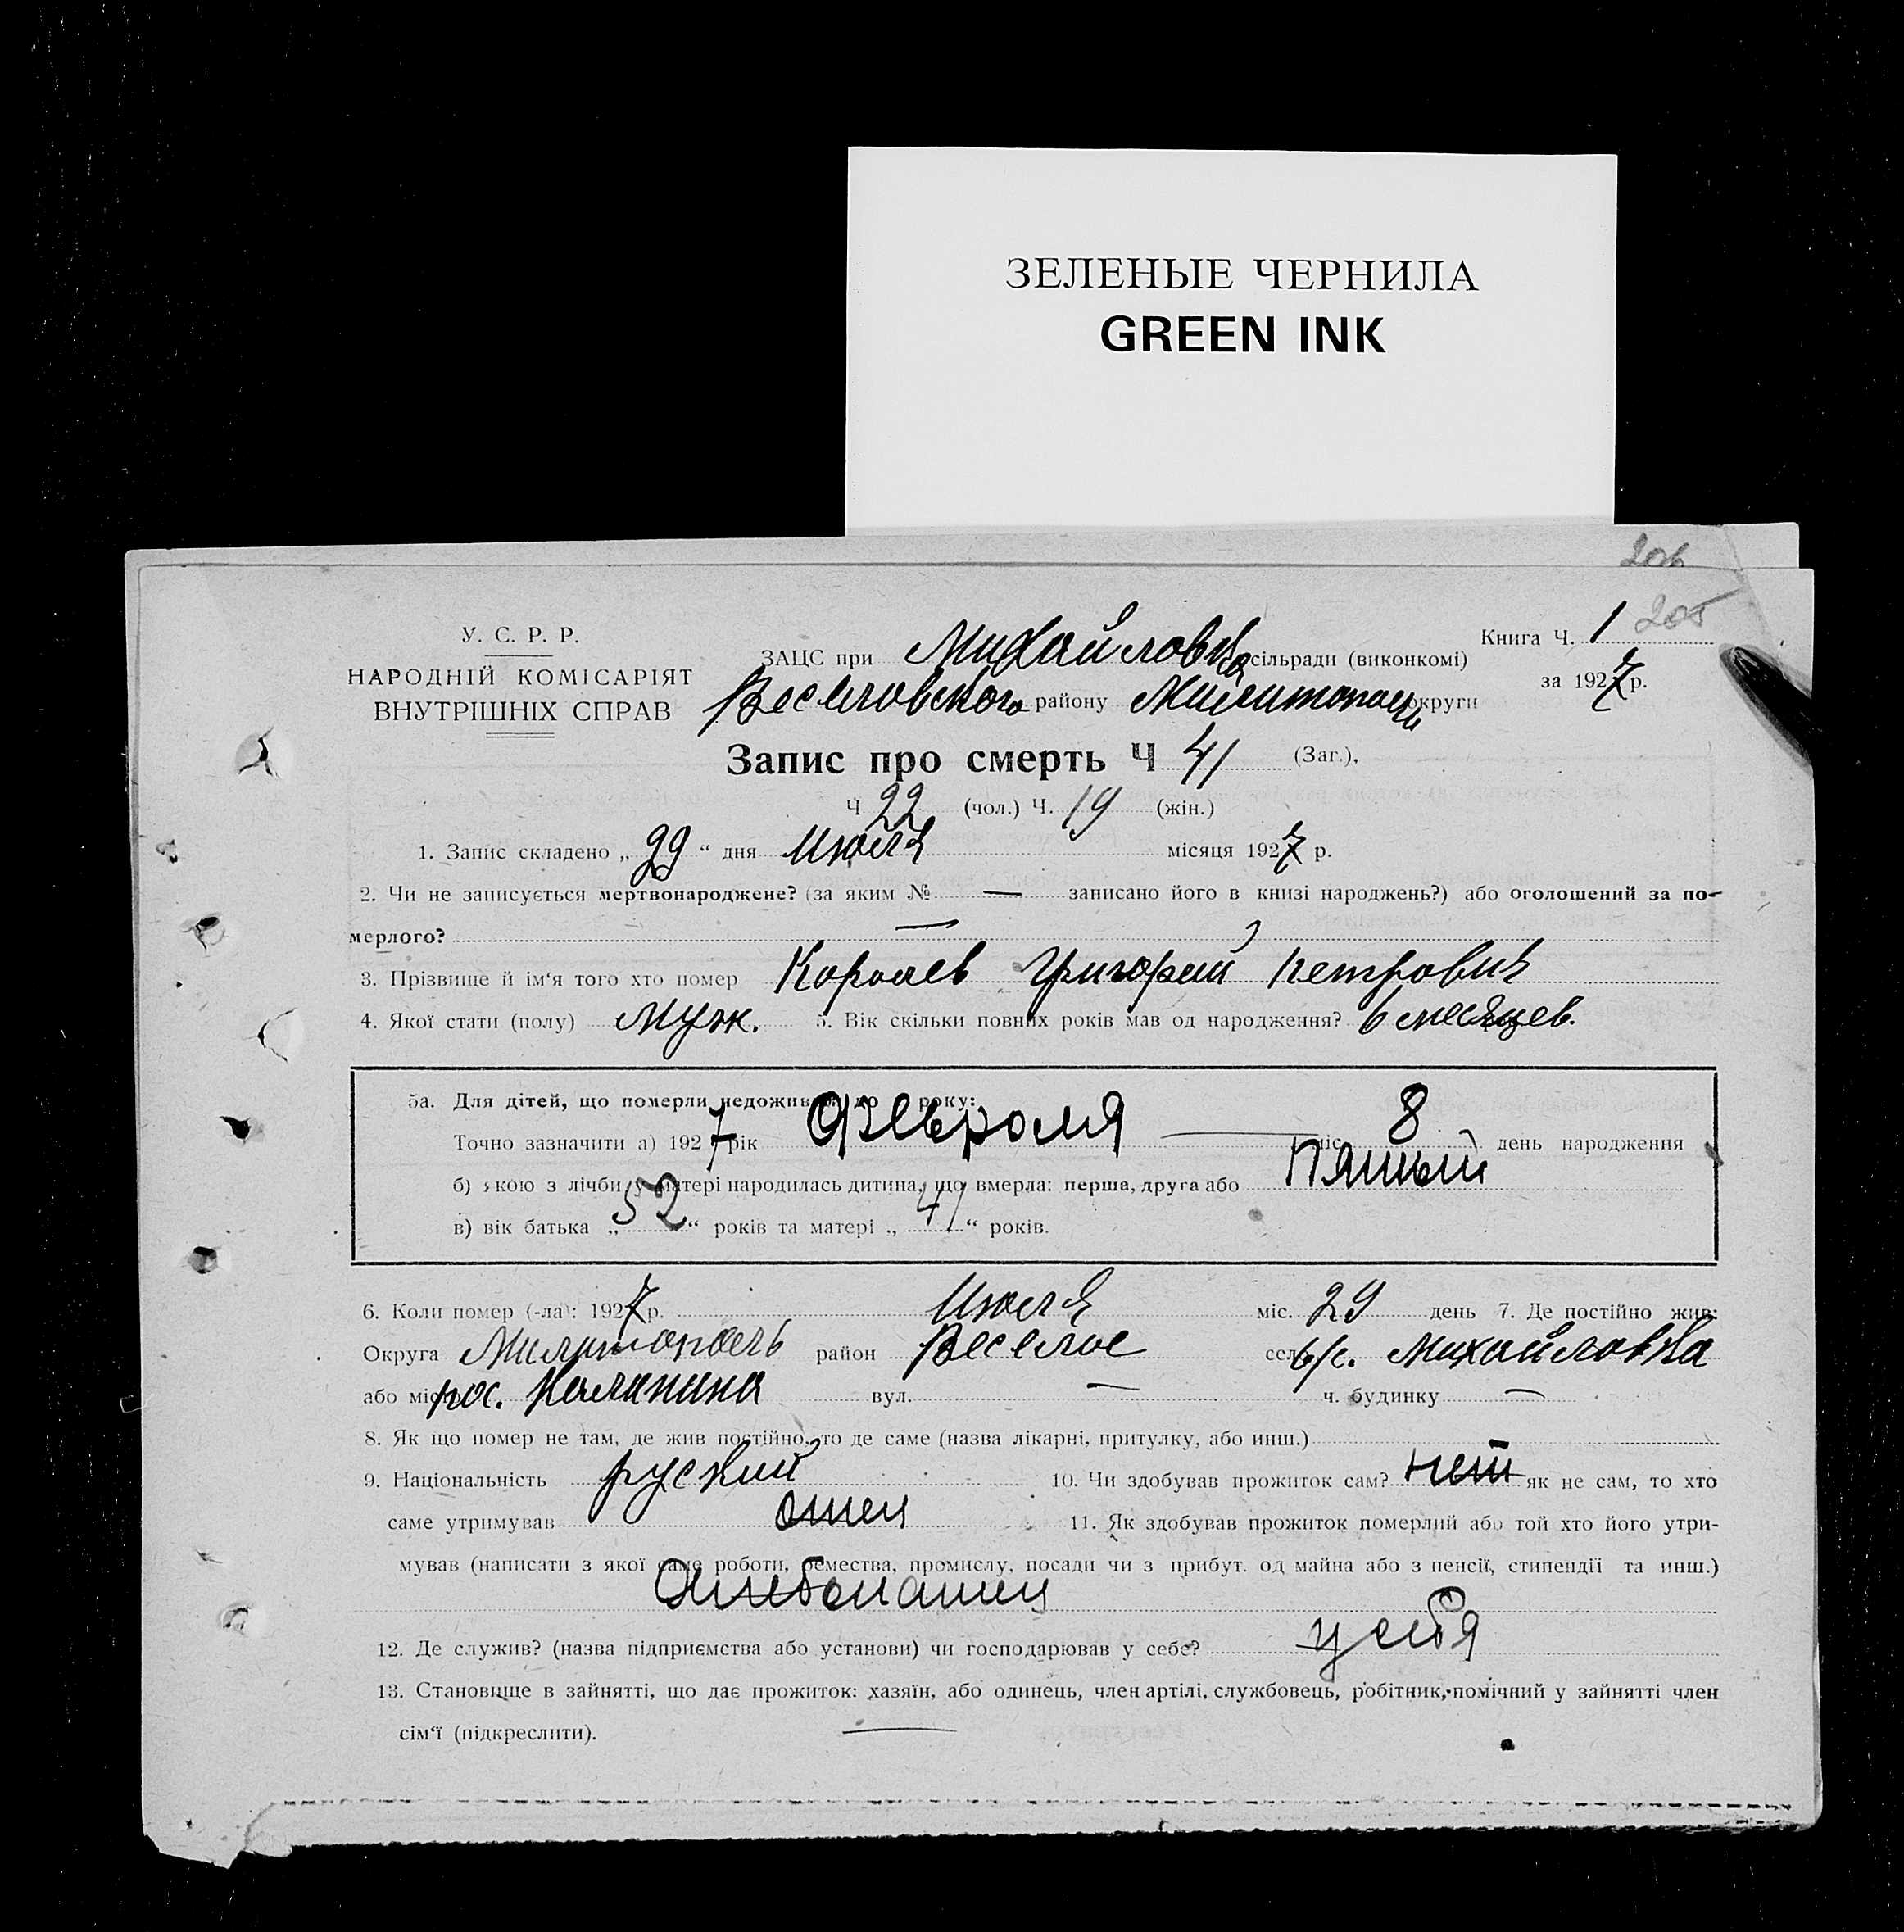 ЗЕЛЕНЫЕ ЧЕРНИЛА
GREEN INK
206
205
У. С. Р. Р.
НАРОДНІЙ КОМІСАРІЯТ
ВНУТРІШНІХ СПРАВ
ЗАЦС при Михайловка сільради (виконкомі)
Веселовского району Мелитополь округи
Книга Ч. 1
за 1927 р.
Запис про смерть Ч 41 (Заг.),
Ч 22 (чол.) Ч. 19 (жін.)
1. Запис складено „ 29 “ дня Июля місяця 1927 р.
2. Чи не записується мертвонароджене? (за яким № — записано його в книзі народжень?) або оголошений за по-
мерлого? —
3. Прізвище й ім‘я того хто помер Королев Григорий Петрович
4. Якої стати (полу) муж. 5. Вік скільки повних років мав од народження? 6 месяцев.
5а. Для дітей, що померли недоживши до року:
Точно зазначити а) 1927 рік Февроля — міс. 8 день народження
б) якою з лічби у матері народилась дитина, що вмерла: перша, друга або пятый
в) вік батька „ 52 “ років та матері „ 41 “ років.
6. Коли помер (-ла): 1927 р. Июля міс. 29 день 7. Де постійно жив:
Округа Милитополь район Веселое село с. Михайловка
або місто пос. Калинина вул. — ч. будинку —
8. Як що помер не там, де жив постійно, то де саме (назва лікарні, притулку, або инш.)
9. Національність руский 10. Чи здобував прожиток сам? нет як не сам, то хто
саме утримував отец 11. Як здобував прожиток померлий або той хто його утри-
мував (написати з якої саме роботи, ремества, промислу, посади чи з прибут. од майна або з пенсії, стипендії та инш.)
12. Де служив? (назва підприємства або установи) чи господарював у себе? у себя
13. Становище в зайнятті, що дає прожиток: хазяїн, або одинець, член артілі, службовець, робітник, помічний у зайнятті член
сім‘ї (підкреслити). —